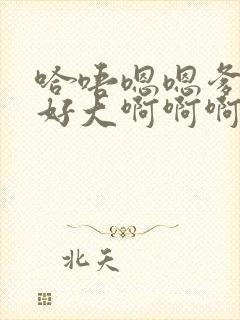 哈唔嗯嗯爹
好大啊啊啊
北天